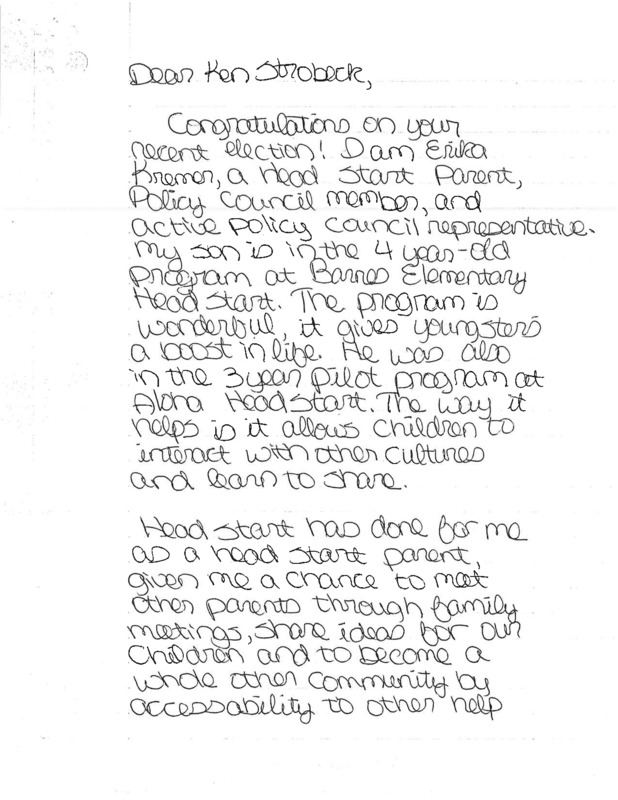 Dear Ken Strobeck,
Congratulations on your
recent election! I am Erika
Kremer, a Head Start Parent,
Policy Council member, and
active Policy Council representative.
My son is in the 4 year-old
program at Barnes Elementary
Head Start. The program is
wonderful, it gives youngsters
a boost in life. He was also
in the 3 year pilot program at
Aloha Head Start. The way it
helps is it allows children to
interact with other cultures
and learn to share.
Head Start has done for me
as a head start parent,
given me a chance to meet
other parents through family
meetings, share ideas for our
Children and to become a
whole other community by
accessability to other help